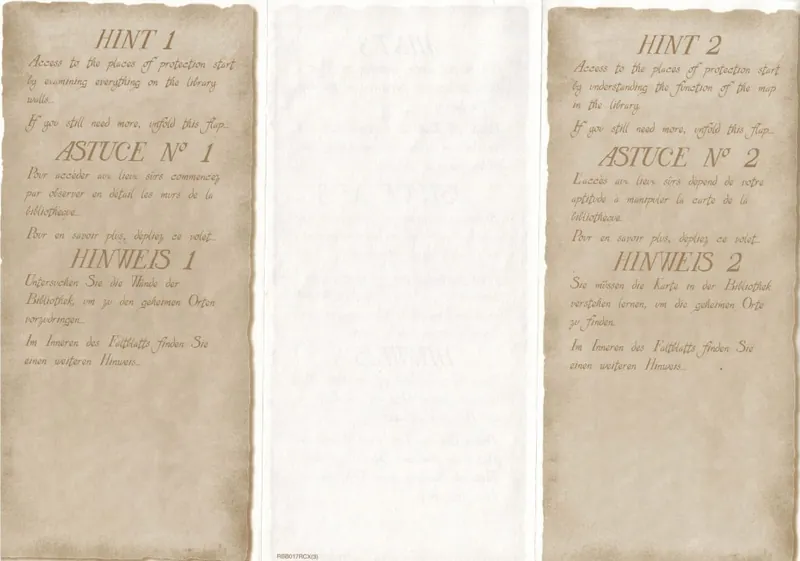 HINT 1
Access to the places of protection start
by examining everything on the library
walls...
If you still need more, unfold this flap...
ASTUCE Nº 1
Pour accéder aux lieux sûrs commencez
par observer en détail les murs de la
bibliothèque...
Pour en savoir plus, dépliez ce volet...
HINWEIS 1
Untersuchen Sie die Wände der
Bibliothek, um zu den geheimen Orten
vorzudringen...
Im Inneren des Faltblatts finden Sie
einen weiteren Hinweis...
RSB017RCX(3)
HINT 2
Access to the places of protection start
by understanding the function of the map
in the library.
If you still need more, unfold this flap...
ASTUCE Nº 2
L'accès aux lieux sûrs dépend de votre
aptitude à manipuler la carte de la
bibliothèque...
Pour en savoir plus, dépliez ce volet...
HINWEIS 2
Sie müssen die Karte in der Bibliothek
verstehen lernen, um die geheimen Orte
zu finden.
Im Inneren des Faltblatts finden Sie
einen weiteren Hinweis...